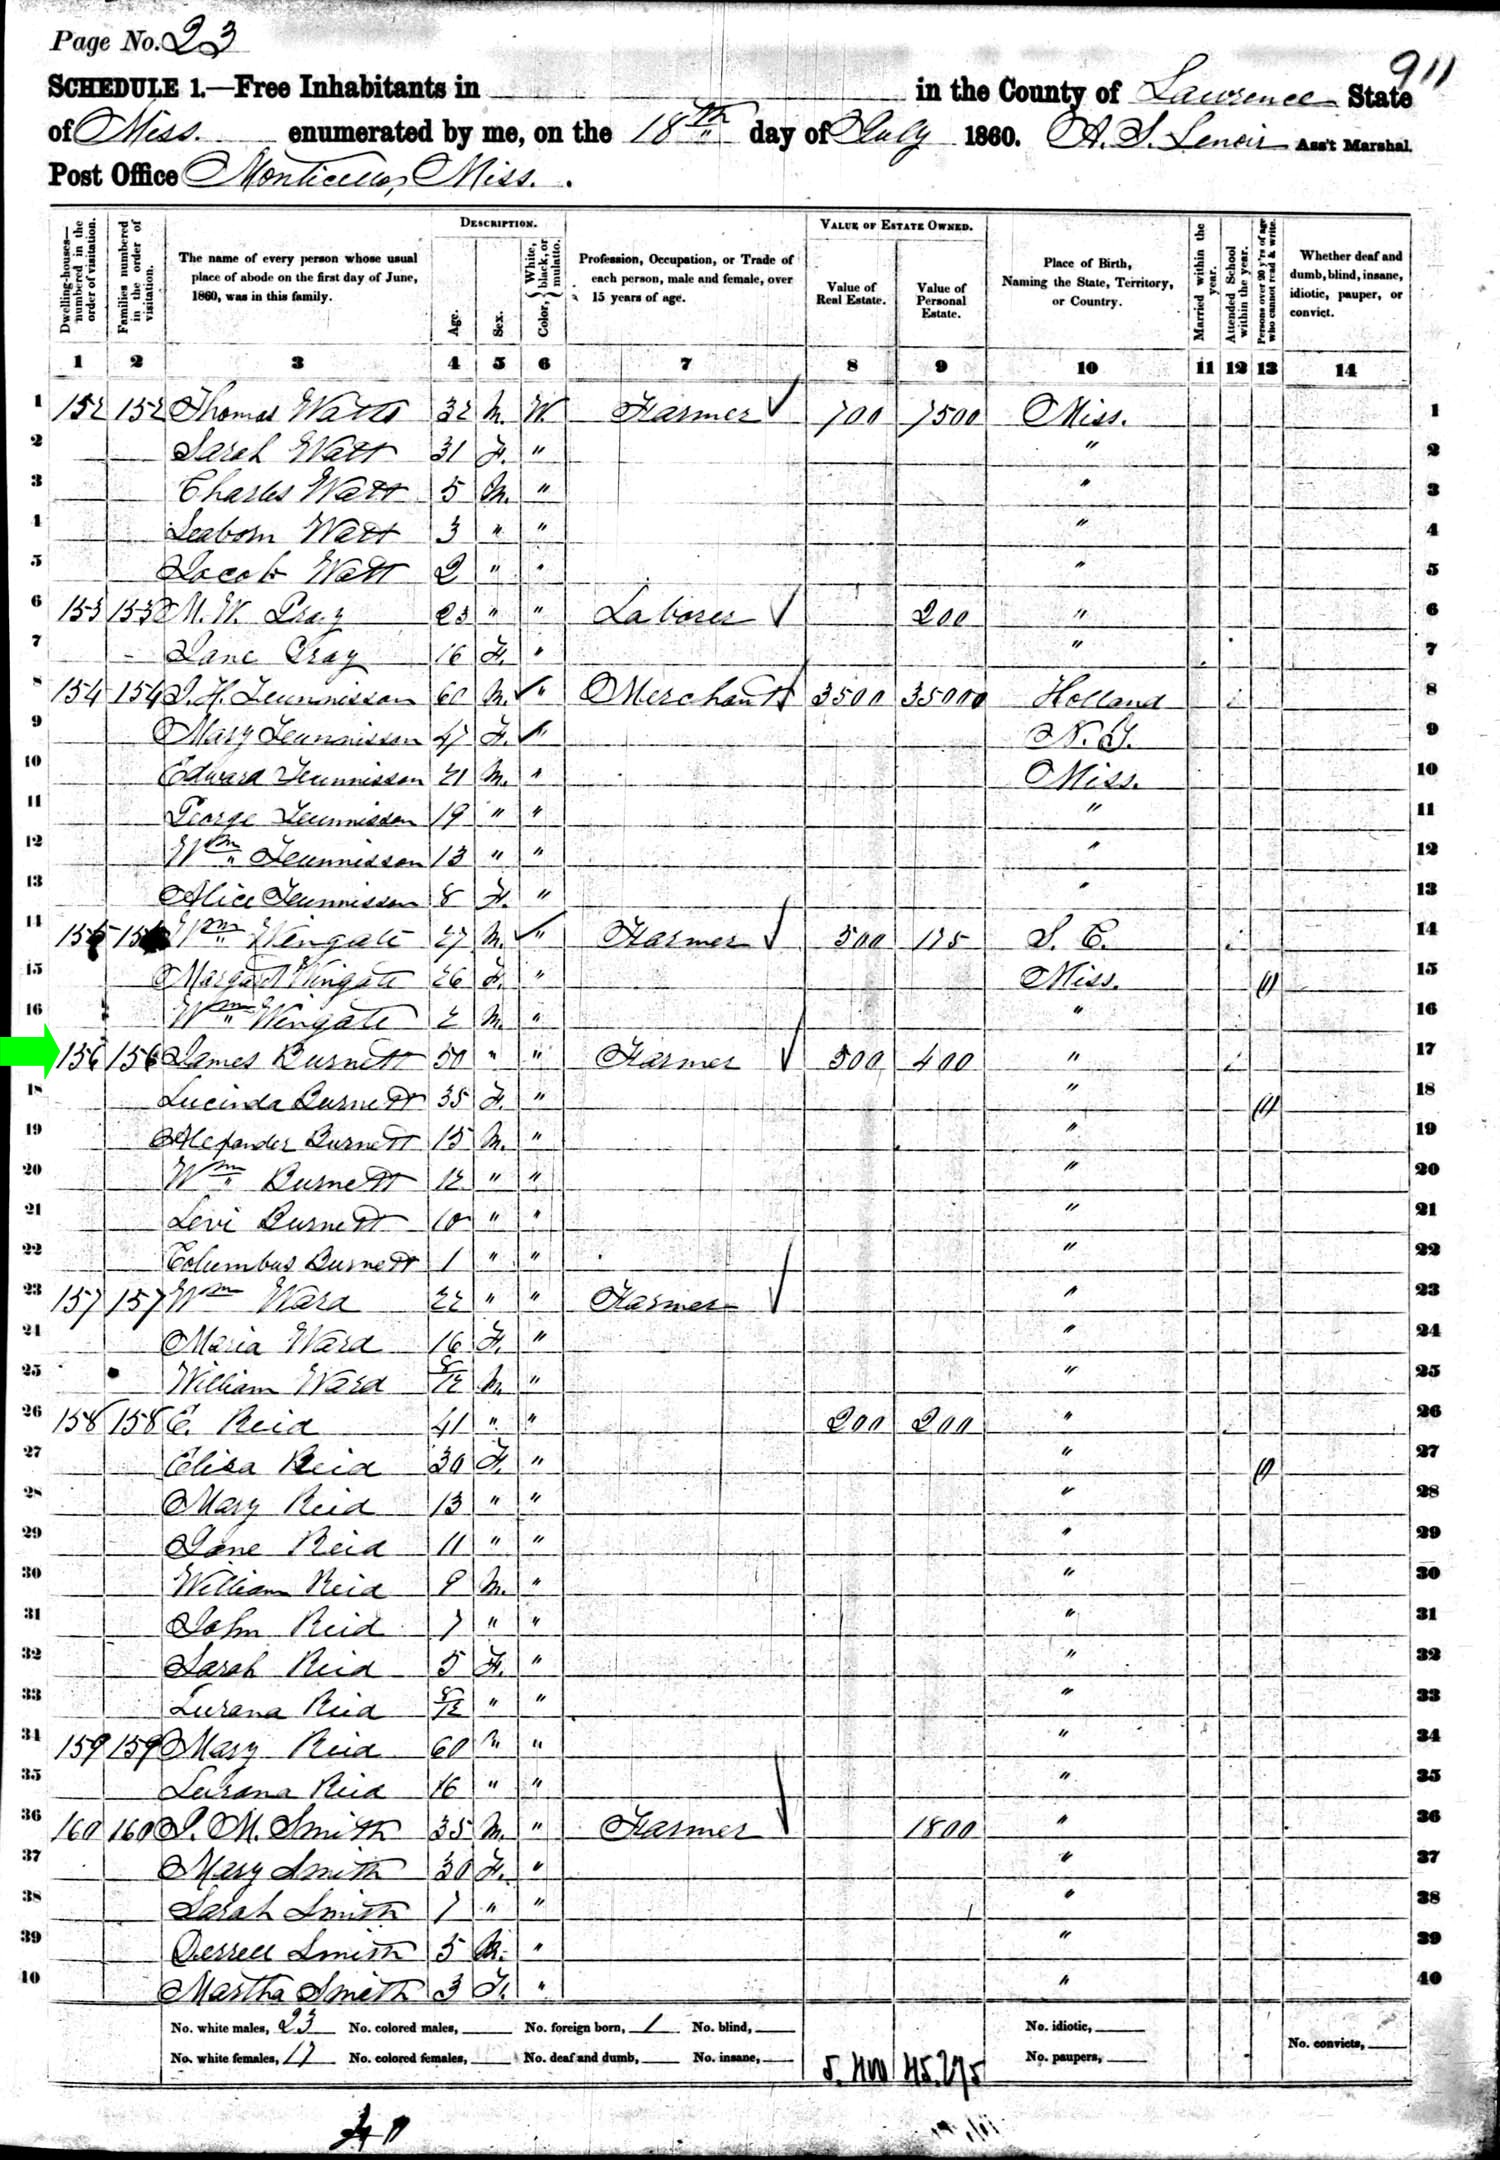 Page No. 23
911
SCHEDULE 1.—Free Inhabitants in in the County of Lawrence State
of Miss. enumerated by me, on the 18th day of July 1860. A. S. Lenoir Ass't Marshal.
Post Office Monticello, Miss.
Dwelling-houses—numbered in the order of visitation.
Families numbered in the order of visitation.
The name of every person whose usual place of abode on the first day of June, 1860, was in this family.
DESCRIPTION.
Age.
Sex.
Color, White, black, or mulatto.
Profession, Occupation, or Trade of each person, male and female, over 15 years of age.
VALUE OF ESTATE OWNED.
Value of Real Estate.
Value of Personal Estate.
Place of Birth, Naming the State, Territory, or Country.
Married within the year.
Attended School within the year.
Persons over 20 y'rs of age who cannot read & write.
Whether deaf and dumb, blind, insane, idiotic, pauper, or convict.
1 2 3 4 5 6 7 8 9 10 11 12 13 14
1 152 152 Thomas Watts 32 M. W. Farmer 700 7500 Miss. 1
2 Sarah Watt 31 F. " " 2
3 Charles Watt 5 M. " " 3
4 Seaborn Watt 3 " " " 4
5 Jacob Watt 2 " " " 5
6 153 153 M. W. Gray 23 " " Laborer 200 " 6
7 Jane Gray 16 F. " " 7
8 154 154 J. H. Teunnisson 60 M. " Merchant 3500 35000 Holland 8
9 Mary Teunnisson 47 F. " N.Y. 9
10 Edward Teunnisson 21 M. " Miss. 10
11 George Teunnisson 19 " " " 11
12 Wm Teunnisson 13 " " " 12
13 Alice Teunnisson 8 F. " " 13
14 155 155 Wm Wingate 27 M. " Farmer 500 175 S. C. 14
15 Margaret Wingate 26 F. " Miss. (1) 15
16 Wm Wingate 2 M. " " 16
156 156 James Burnett 50 " " Farmer 500 400 " 17
18 Lucinda Burnett 35 F. " " (1) 18
19 Alexander Burnett 15 M. " " 19
20 Wm Burnett 12 " " " 20
21 Levi Burnett 10 " " " 21
22 Columbus Burnett 1 " " " 22
23 157 157 Wm Ward 22 " " Farmer " 23
24 Maria Ward 16 F. " " 24
25 William Ward 8/12 M. " " 25
26 158 158 E. Reid 41 " " 200 200 " 26
27 Eliza Reid 30 F. " " (1) 27
28 Mary Reid 13 " " " 28
29 Jane Reid 11 " " " 29
30 William Reid 9 M. " " 30
31 John Reid 7 " " " 31
32 Sarah Reid 5 F. " " 32
33 Lurana Reid 8/12 " " " 33
34 159 159 Mary Reid 60 " " 34
35 Lurana Reid 16 " " " 35
36 160 160 J. M. Smith 35 M. " Farmer 1800 " 36
37 Mary Smith 30 F. " " 37
38 Sarah Smith 7 " " " 38
39 Derrell Smith 5 M. " " 39
40 Martha Smith 3 F. " " 40
No. white males, 23 No. colored males, No. foreign born, 1 No. blind, No. idiotic,
No. white females, 17 No. colored females, No. deaf and dumb, No. insane, 5.400 45.275 No. paupers, No. convicts,